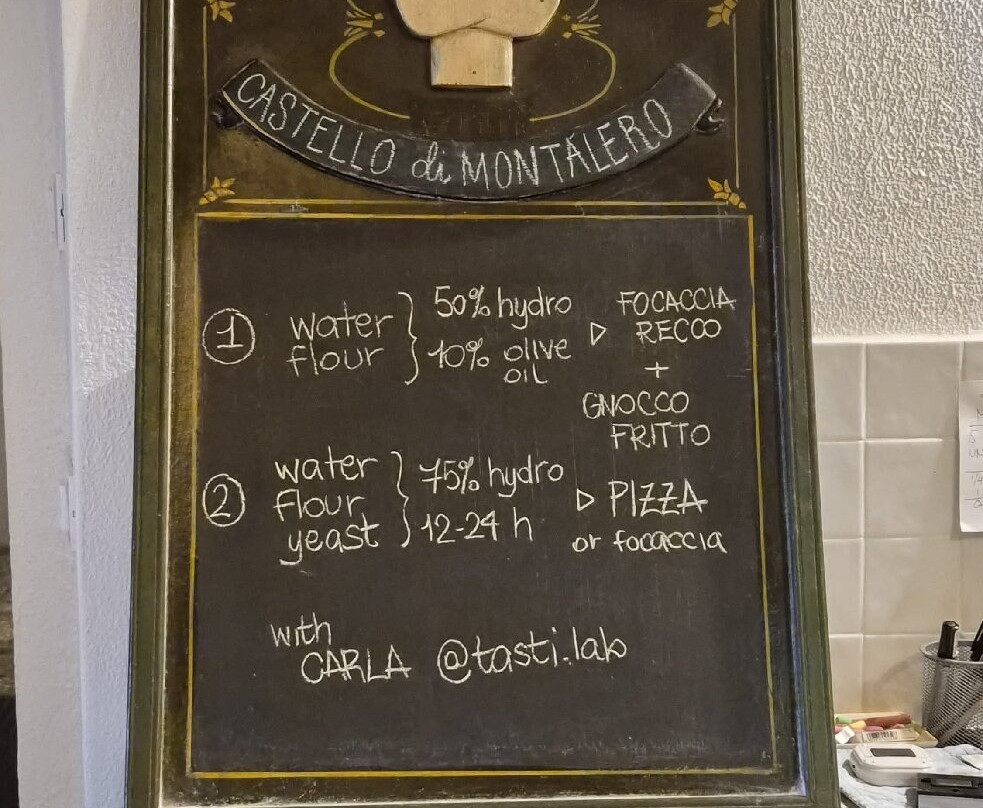 CASTELLO di MONTALERO
1 water flour } 50% hydro 10% olive OIL ▷ FOCACCIA RECCO
+
GNOCCO FRITTO
2 water flour yeast } 75% hydro 12-24 h ▷ PIZZA or focaccia
with
CARLA @tasti.lab